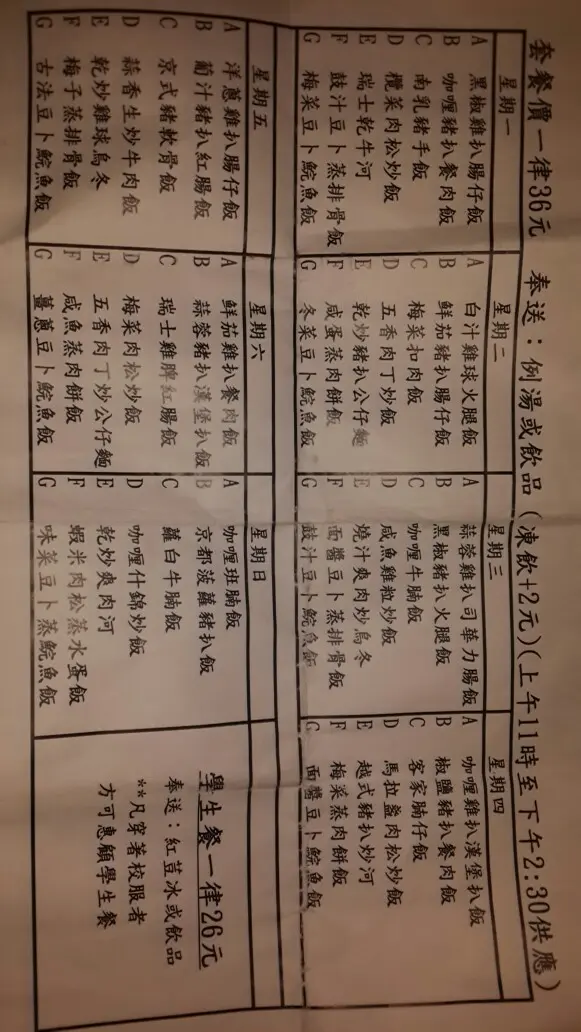 套餐價一律36元 奉送：例湯或飲品（凍飲+2元）(上午11時至下午2:30供應)
星期一
A 黑椒雞扒腸仔飯
B 咖喱豬扒餐肉飯
C 南乳豬手飯
D 欖菜肉松炒飯
E 瑞士乾牛河
F 鼓汁豆卜蒸排骨飯
G 梅菜豆卜鯇魚飯
星期二
A 白汁雞球火腿飯
B 鮮茄豬扒腸仔飯
C 梅菜扣肉飯
D 五香肉丁炒飯
E 乾炒豬扒公仔麵
F 咸蛋蒸肉餅飯
G 冬菜豆卜鯇魚飯
星期三
A 蒜蓉雞扒司華力腸飯
B 黑椒豬扒火腿飯
C 咖喱牛腩飯
D 咸魚雞粒炒飯
E 燒汁爽肉炒烏冬
F 面醬豆卜蒸排骨飯
G 鼓汁豆卜鯇魚飯
星期四
A 咖喱雞扒漢堡扒飯
B 椒鹽豬扒餐肉飯
C 客家腩仔飯
D 馬拉盞肉松炒飯
E 越式豬扒炒河
F 梅菜蒸肉餅飯
G 面醬豆卜鯇魚飯
星期五
A 洋蔥雞扒腸仔飯
B 葡汁豬扒紅腸飯
C 京式豬軟骨飯
D 蒜香生炒牛肉飯
E 乾炒雞球烏冬
F 梅子蒸排骨飯
G 古法豆卜鯇魚飯
星期六
A 鮮茄雞扒餐肉飯
B 蒜蓉豬扒漢堡扒飯
C 瑞士雞脾紅腸飯
D 梅菜肉松炒飯
E 五香肉丁炒公仔麵
F 咸魚蒸肉餅飯
G 薑蔥豆卜鯇魚飯
星期日
A 咖喱斑腩飯
B 京都菠蘿豬扒飯
C 蘿白牛腩飯
D 咖喱什錦炒飯
E 乾炒爽肉河
F 蝦米肉松蒸水蛋飯
G 味菜豆卜蒸鯇魚飯
學生餐一律26元
奉送：紅豆冰或飲品
**凡穿著校服者
方可惠顧學生餐